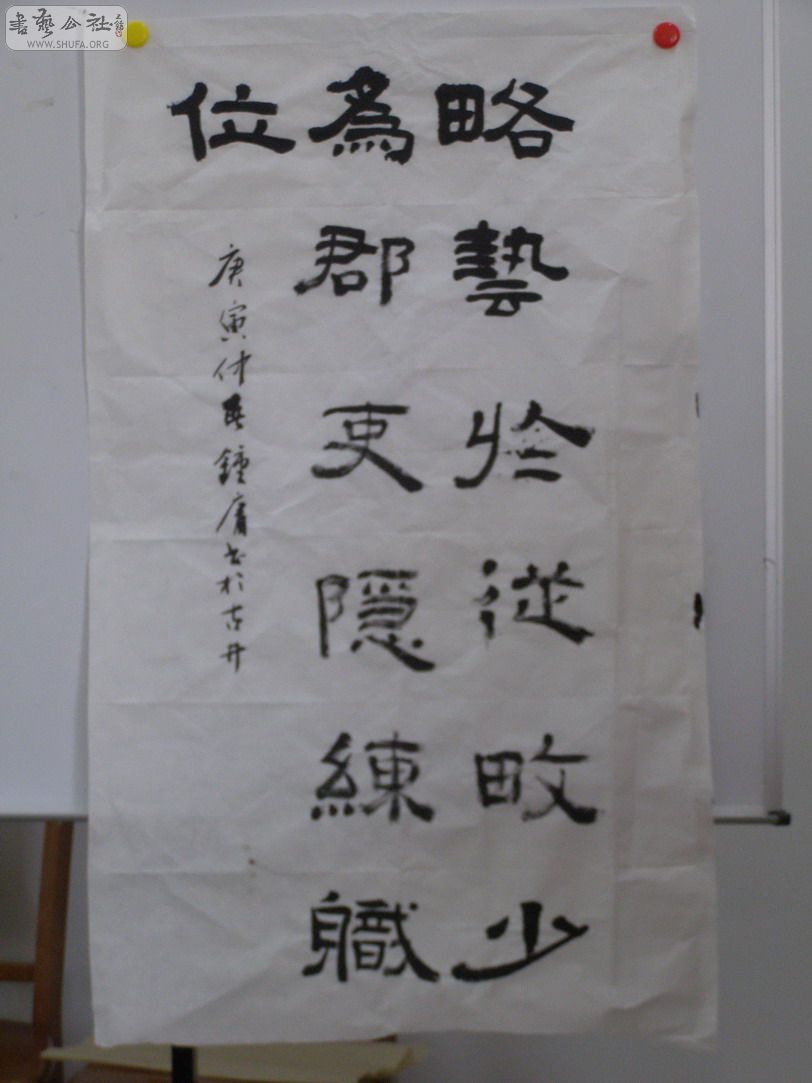 書藝公社
WWW.SHUFA.ORG
略藝於從畋少
為郡吏隱練軄
位
庚寅仲春鐘書於古